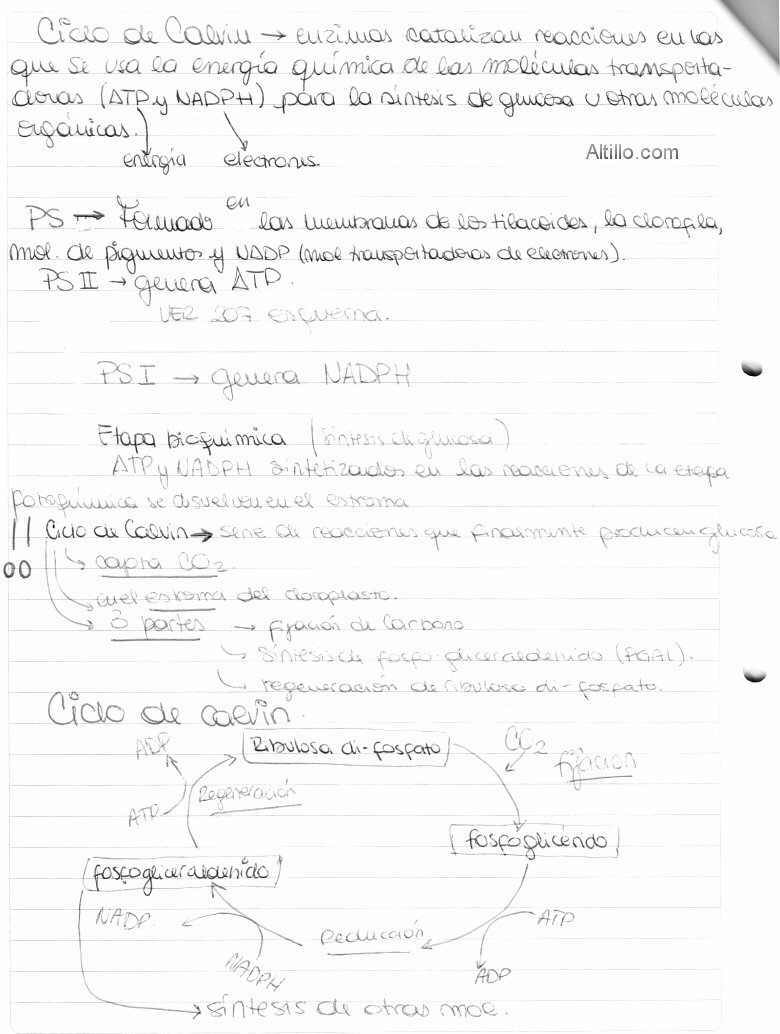 Ciclo de Calvin → enzimas catalizan reacciones en las
que se usa la energía química de las moléculas transporta-
doras (ATP y NADPH) para la síntesis de glucosa u otras moléculas
orgánicas.
energía electrones.
Altillo.com
PS → Formado en las membranas de los tilacoides, la clorofila,
mol. de pigmentos y NADP (mol transportadoras de electrones).
PS II → genera ATP.
VER 207 esquema.
PS I → genera NADPH
Etapa bioquímica (síntesis de glucosa)
ATP y NADPH sintetizados en las reacciones de la etapa
fotoquímica se disuelven en el estroma
Ciclo de Calvin → serie de reacciones que finalmente producen glucosa
→ capta CO2.
→ en el estroma del cloroplasto.
→ 3 partes → fijación de Carbono
→ síntesis de fosfo-gliceraldehido (PGAL).
→ regeneración de ribulosa di-fosfato.
Ciclo de calvin.
ADP Ribulosa di-fosfato CO2
fijación
Regeneración
ATP
fosfoglicerido
fosfogliceraldehido
NADP ATP
Reducción
NADPH ADP
→ síntesis de otras mol.